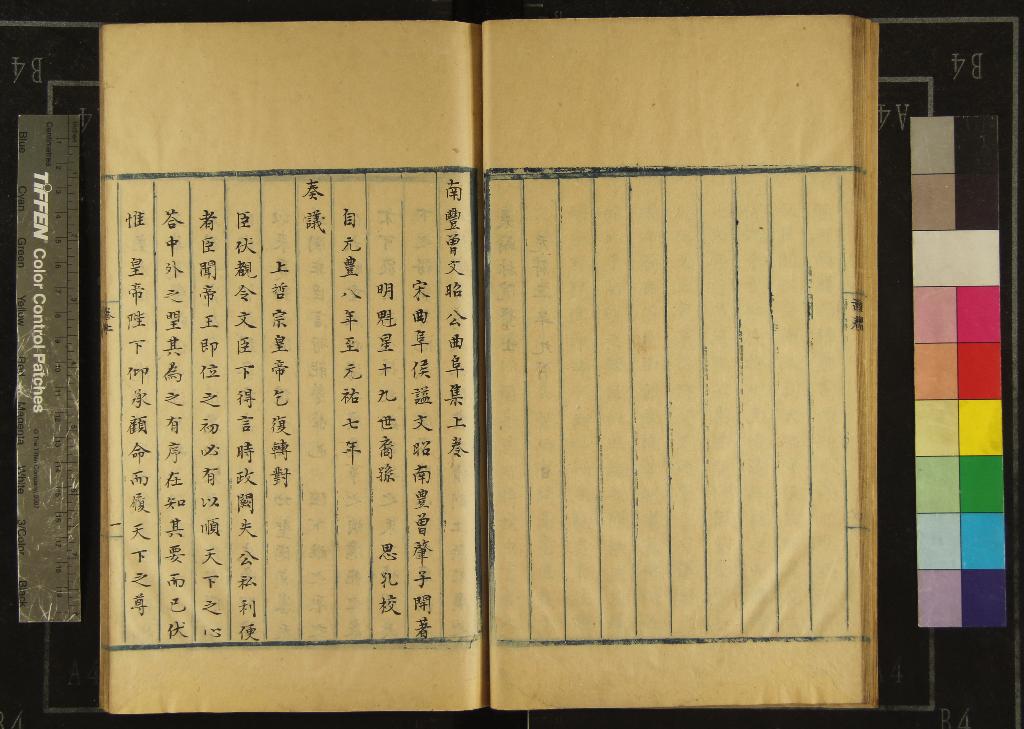 南豐曾文昭公曲阜集上卷
宋曲阜侯謚文昭南豐曾肇子開著
明魁星十九世裔孫 思孔校
自元豐八年至元祐七年
奏議
上哲宗皇帝乞復轉對
臣伏覩令文臣下得言時政闕失公私利便
者臣聞帝王即位之初必有以順天下之心
答中外之望其為之有序在知其要而已伏
惟 皇帝陛下仰承顧命而履天下之尊
一
TIFFEN Color Control Patches
Blue Cyan Green Yellow Red Magenta White 3/Color Black
Centimetres
Inches
B4
B4
A4
A4
B4